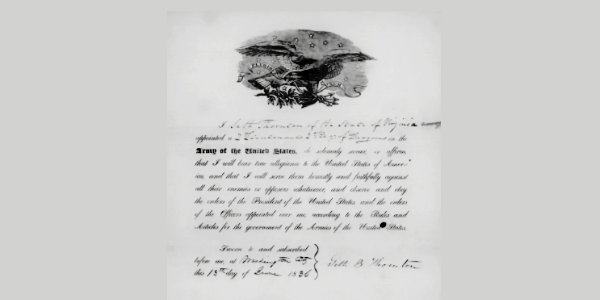 I Seth Thornton of the State of Virginia
appointed a 2 Lieutenant 2 Reg. of Dragoons in the
Army of the United States, do solemnly swear, or affirm,
that I will bear true allegiance to the United States of Amer-
ica, and that I will serve them honestly and faithfully against
all their enemies or opposers whatsoever, and observe and obey
the orders of the President of the United States and the orders
of the Officers appointed over me, according to the Rules and
Articles for the government of the Armies of the United States.
Sworn to and subscribed
before me, at Washington City
this 13th day of June 1836
Seth B Thornton